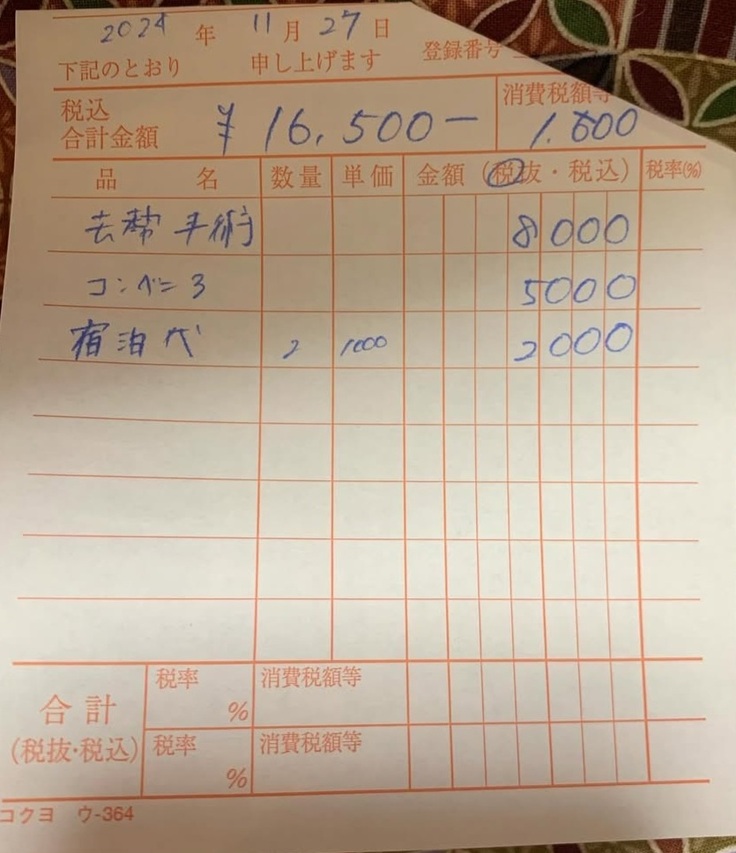 2024 年 11 月 27 日
下記のとおり 申し上げます 登録番号
税込 合計金額 ¥16,500- 消費税額等 1.500
品 名 数量 単価 金額 (税抜・税込) 税率(%)
去勢手術 8000
コンベニ3 5000
宿泊代 2 1000 2000
合計 (税抜・税込) 税率 % 消費税額等
税率 % 消費税額等
コクヨ ウ-364